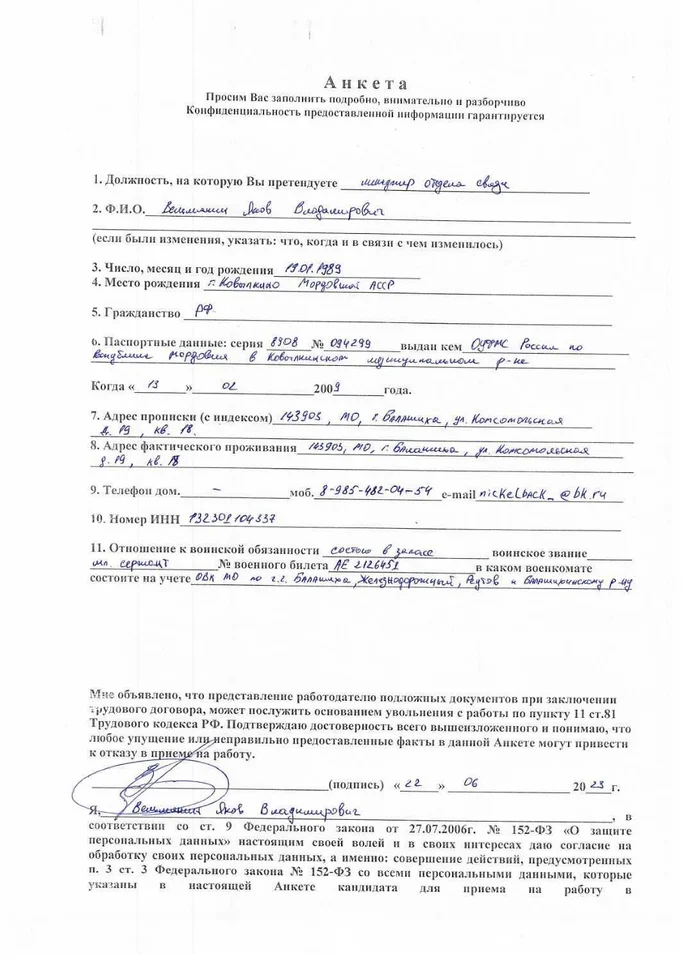 Анкета
Просим Вас заполнить подробно, внимательно и разборчиво
Конфиденциальность предоставленной информации гарантируется
1. Должность, на которую Вы претендуете менеджер отдела связи
2. Ф.И.О. Яков Владимирович
(если были изменения, указать: что, когда и в связи с чем изменилось)
3. Число, месяц и год рождения 19.01.1989
4. Место рождения г. Ковылкино Мордовской АССР
5. Гражданство РФ
6. Паспортные данные: серия 8908 № 094299 выдан кем ОУФМС России по
Республике Мордовия в Ковылкинском муниципальном р-не
Когда « 13 » 02 2009 года.
7. Адрес прописки (с индексом) 143903, МО, г. Балашиха, ул. Комсомольская
д. 19, кв. 18.
8. Адрес фактического проживания 143903, МО, г. Балашиха, ул. Комсомольская
д. 19, кв. 18
9. Телефон дом. – моб. 8-985-482-04-54 e-mail nickelback_@bk.ru
10. Номер ИНН 132301104337
11. Отношение к воинской обязанности состою в запасе воинское звание
мл. сержант № военного билета АЕ 2126451 в каком военкомате
состоите на учете ОВК МО по г.г. Балашиха, Железнодорожный, Реутов и Балашихинскому р-ну
Мне объявлено, что представление работодателю подложных документов при заключении
трудового договора, может послужить основанием увольнения с работы по пункту 11 ст.81
Трудового кодекса РФ. Подтверждаю достоверность всего вышеизложенного и понимаю, что
любое упущение или неправильно предоставленные факты в данной Анкете могут привести
к отказу в приеме на работу.
(подпись) « 22 » 06 2023 г.
Я, Яков Владимирович, в
соответствии со ст. 9 Федерального закона от 27.07.2006г. № 152-ФЗ «О защите
персональных данных» настоящим своей волей и в своих интересах даю согласие на
обработку своих персональных данных, а именно: совершение действий, предусмотренных
п. 3 ст. 3 Федерального закона № 152-ФЗ со всеми персональными данными, которые
указаны в настоящей Анкете кандидата для приема на работу в